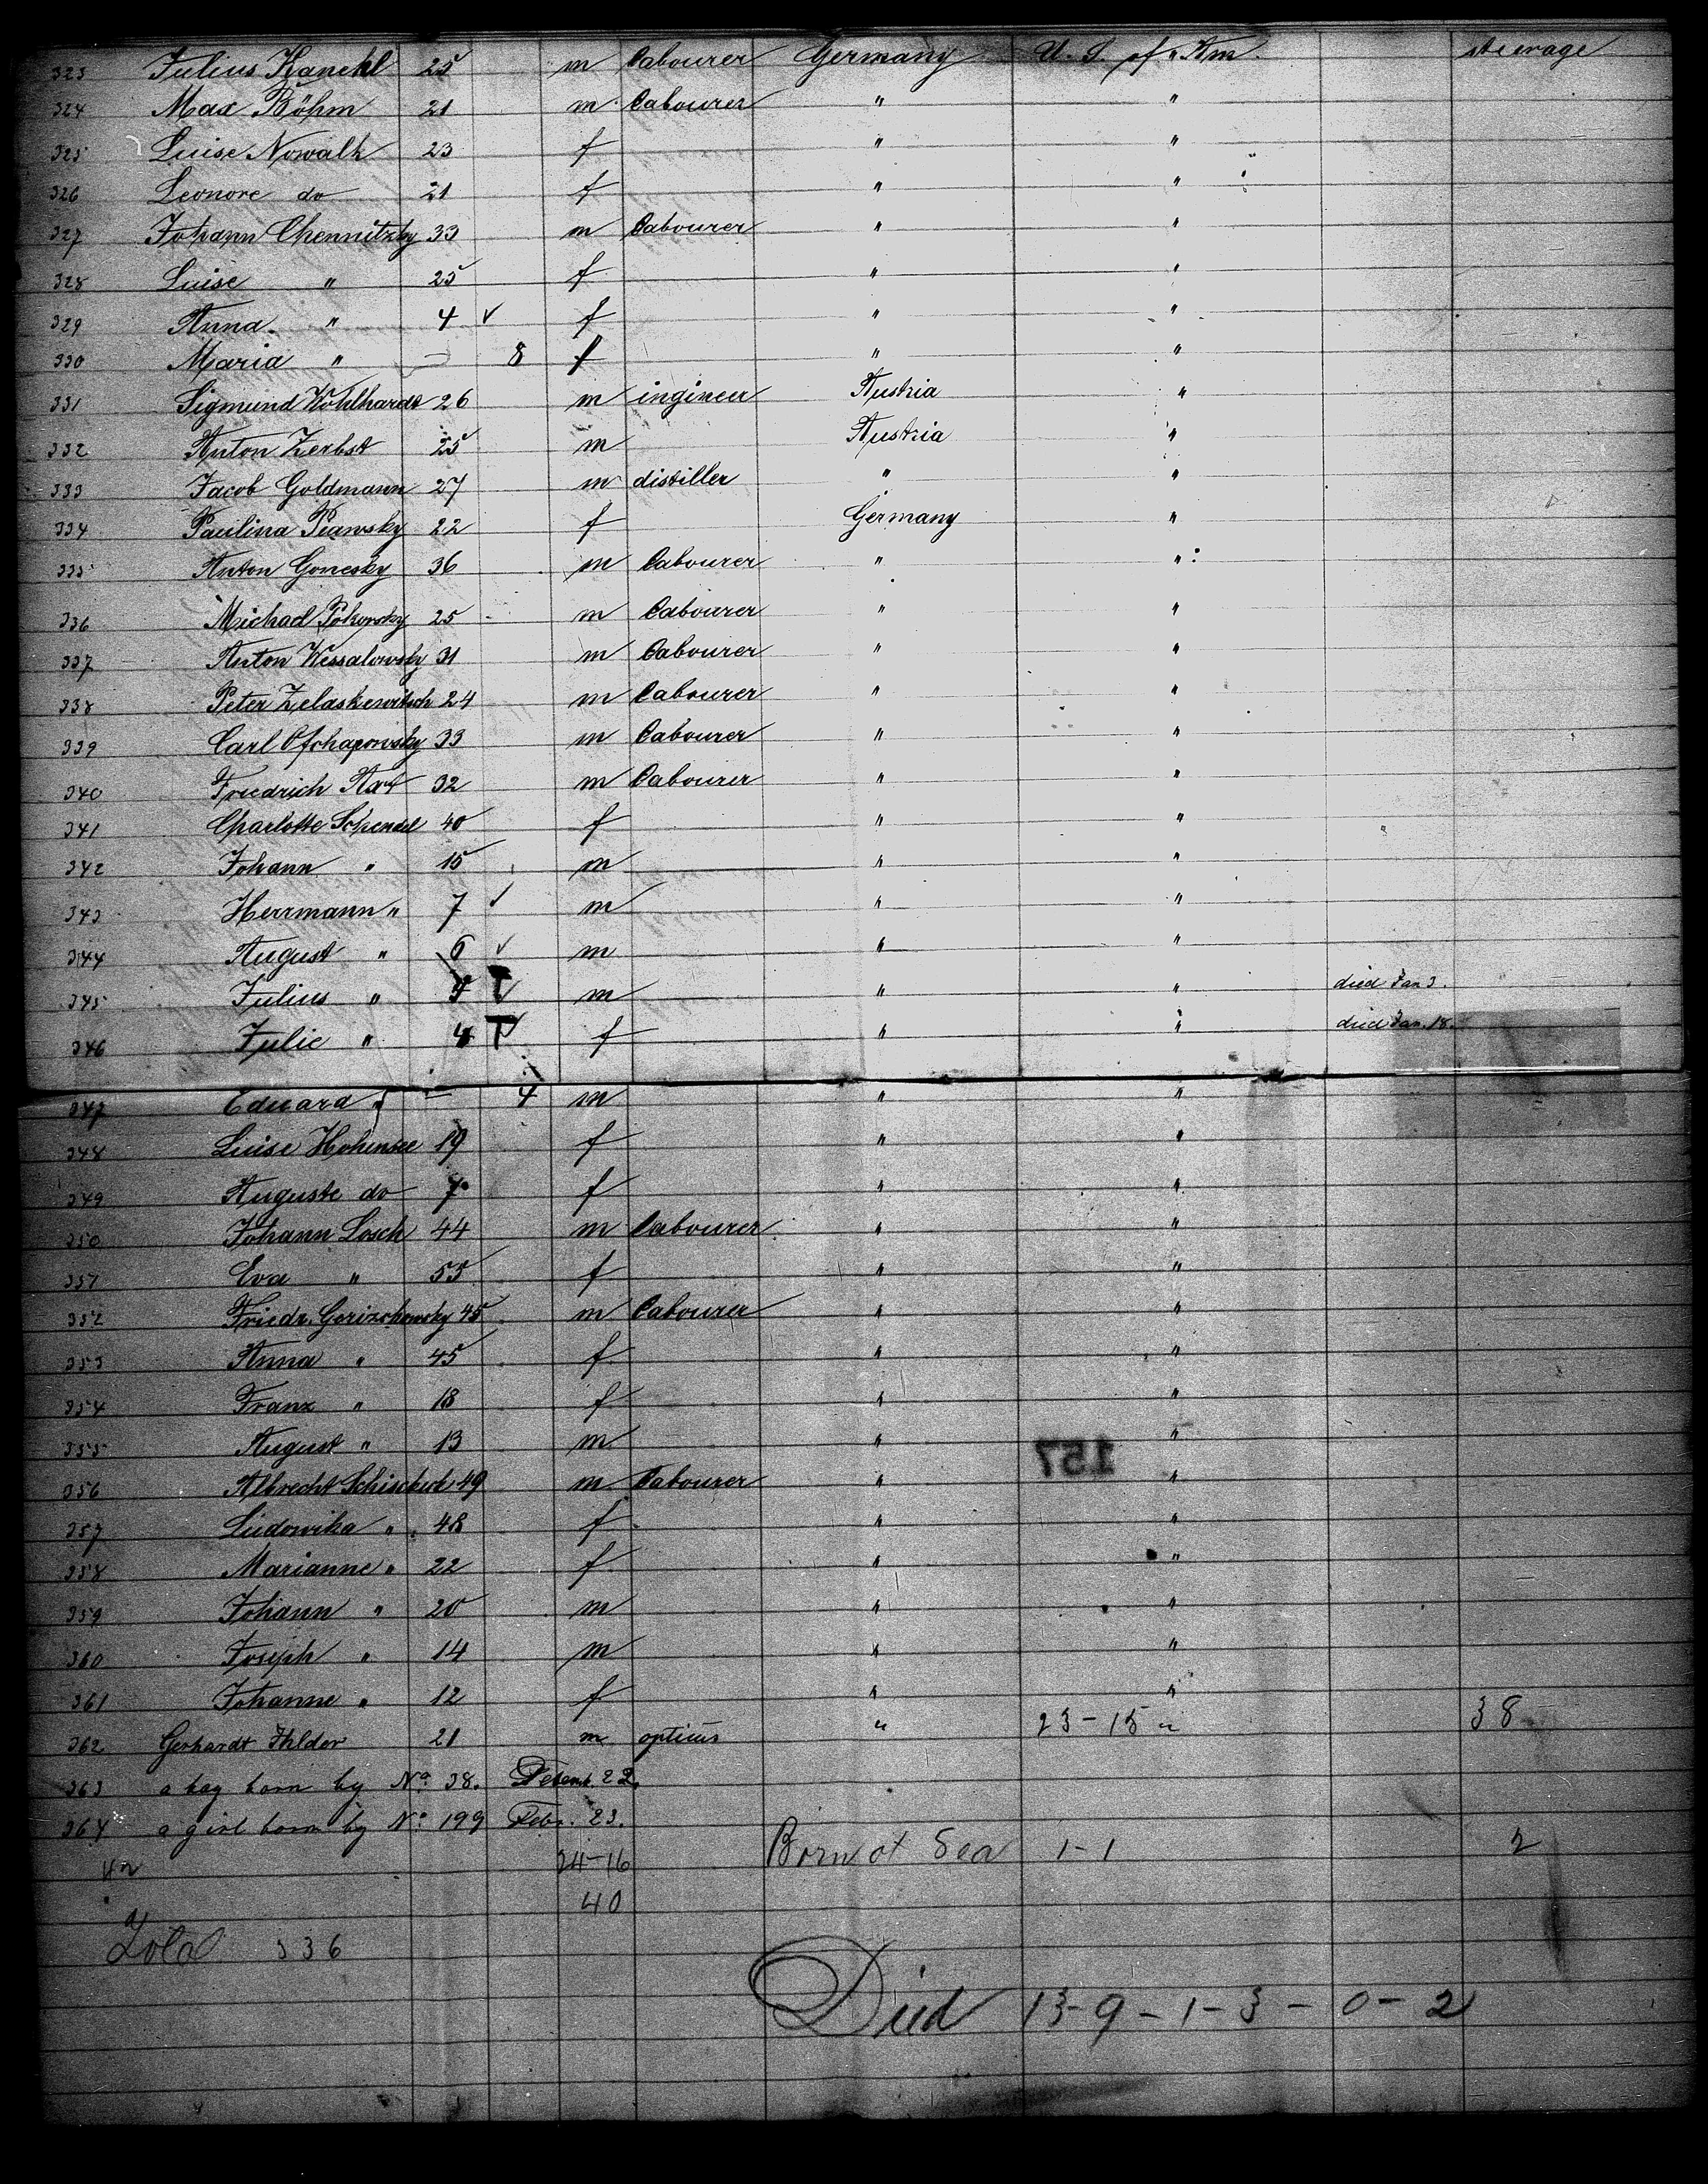 323 Julius Kanehl 25 m Labourer Germany U. S. of Am. steerage
324 Max Böhm 21 m Labourer " "
325 Luise Nowalk 23 f " "
326 Leonore do 21 f " "
327 Johann Chennitzky 33 m Labourer " "
328 Luise " 25 f " "
329 Anna " 4 ✓ f " "
330 Maria " — 8 f " "
331 Sigmund Wohlhardt 26 m ingineer Austria "
332 Anton Zerbst 25 m Austria "
333 Jacob Goldmann 27 m distiller " "
334 Paulina Piawsky 22 f Germany "
335 Anton Gonesky 36 m Labourer " "
336 Michael Pokorsky 25 m Labourer " "
337 Anton Wessalowsky 31 m Labourer " "
338 Peter Zelaskewitsch 24 m Labourer " "
339 Carl 33 m Labourer " "
340 Friedrich 32 m Labourer " "
341 Charlotte Schendel 40 f " "
342 Johann " 15 m " "
343 Herrmann " 7 ✓ m " "
344 August " 6 ✓ m " "
345 Julius " 4 m " " died Jan 3.
346 Julie " 4 f " " died Jan. 18.
347 Eduard " — 4 m " "
348 Luise Hohensee 19 f " "
349 Auguste do 7 f " "
350 Johann Losch 44 m Labourer " "
351 Eva " 55 f " "
352 Friedr. Gorizchowsky 45 m Labourer " "
353 Anna " 45 f " "
354 Franz " 18 f " "
355 August " 13 m " "
157
356 Albrecht 49 m Labourer " "
357 Ludowika " 48 f " "
358 Marianne " 22 f " "
359 Johann " 20 m " "
360 Joseph " 14 m " "
361 Johanne " 12 f " "
362 Gerhardt 21 m opticus " 23-15 " 38
363 a boy born by No. 38. 22.
364 a girl born by No. 199 Febr. 23.
24-16 Born at Sea 1-1 2
40
Total 336
Died 13-9-1-3-0-2